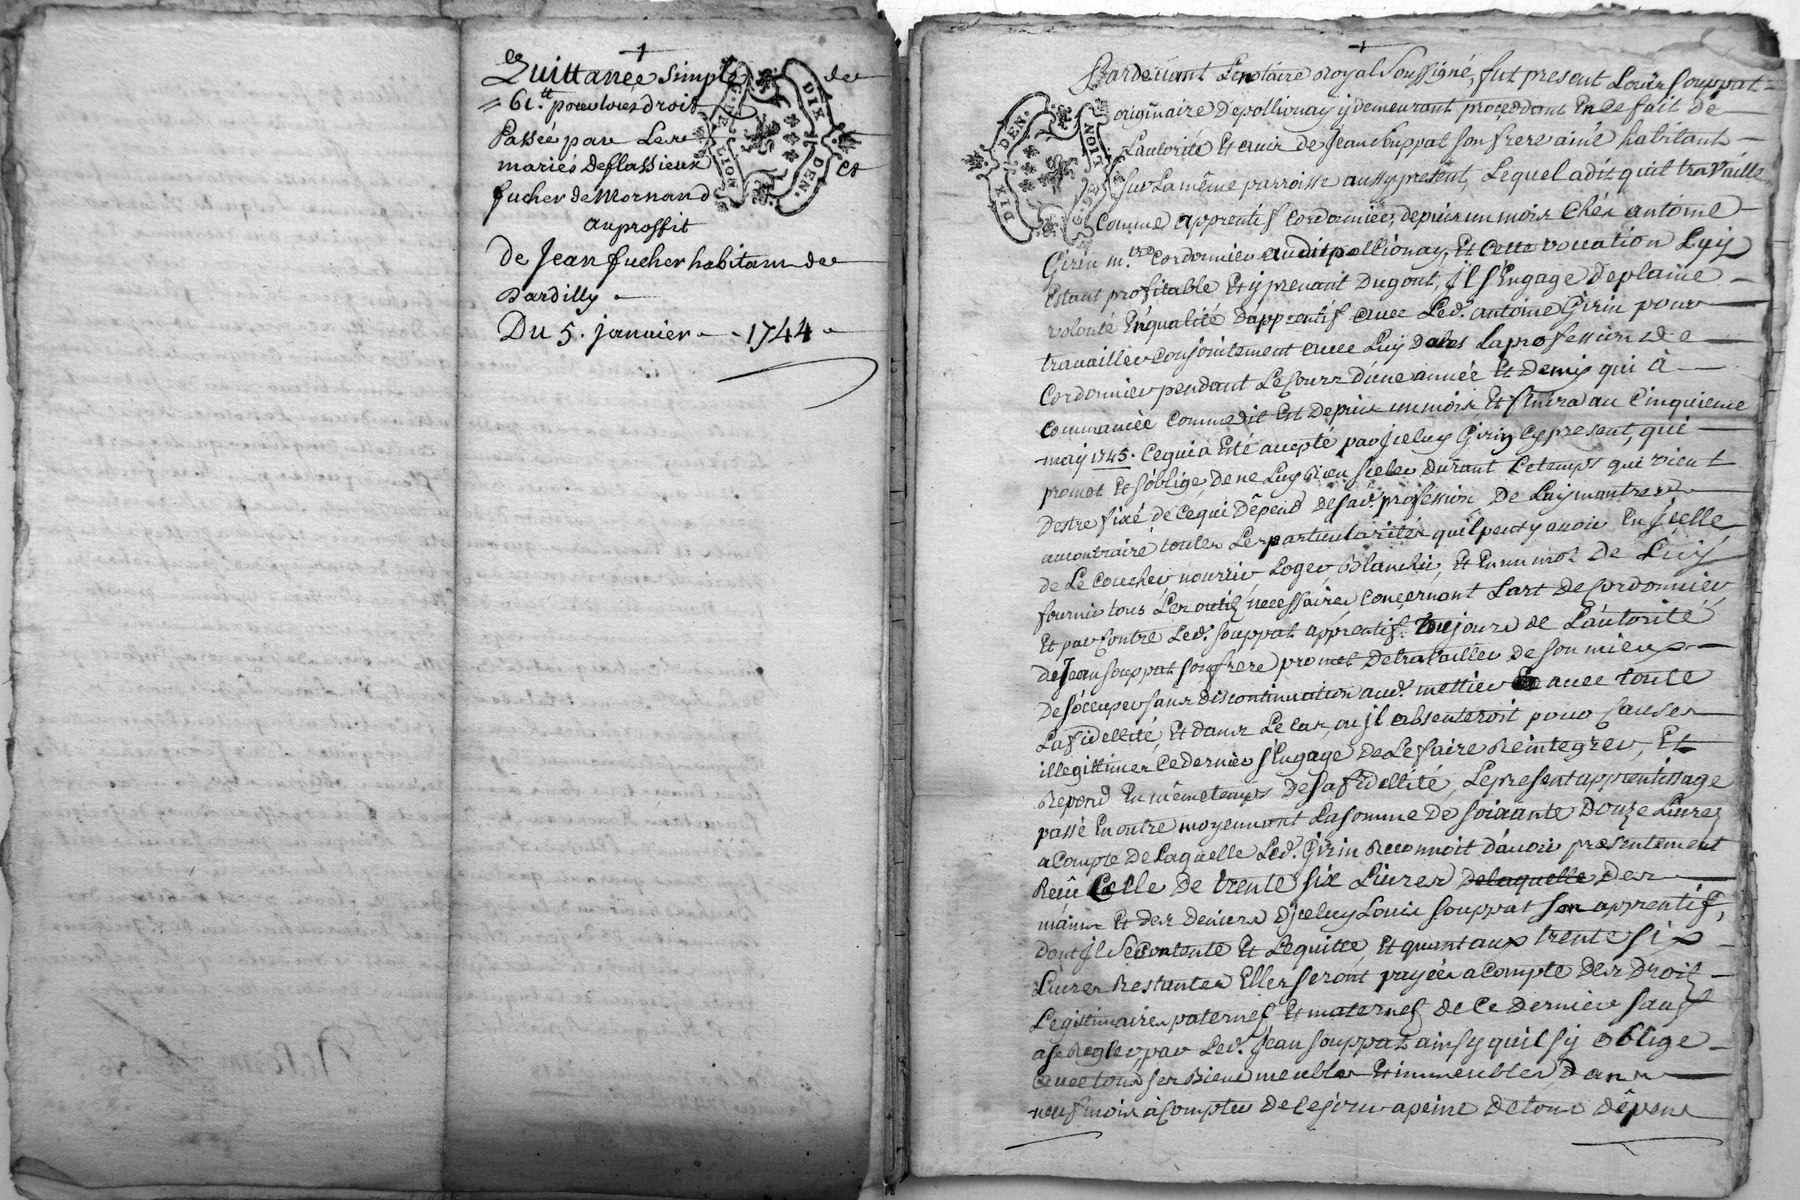 Quittance simple de
61.lt pour tous droit
Passée par Les
mariés deflassieux et
fucher de Mornand
au proffit
de Jean fucher habitant de
Dardilly
Du 5. janvier 1744
G. DE LION
DIX DEN.
Pardevant Le notaire Royal Soussigné, fut present Louis Souppat
originaire de pollionay y demeurant procedant En ce fait de
L'autorité Et avis de Jean Souppat son frere ainé habitant
Sur La même parroisse aussy present, Lequel a dit qu'il travaille
Comme apprentif Cordonnier, depuis un mois Chés antoine
Girin m.tre Cordonnier audit pollionay, Et Cette vocation Luy
Estant profitable Et y prenant Du gout, jl s'Engage de plaine
volonté En qualité D'apprentif avec Led. antoine Girin pour
travailler Conjointement avec Luy dans La profession de
Cordonnier pendant Le Cours D'une année Et Demy qui à
Commancée Comme dit Est Depuis un mois Et finira au Cinquieme
may 1745. Ce qui a Eté accepté par jceluy Girin Cy present, qui
promet Et s'oblige de ne Luy Rien Celer durant Le temps qui vient
D'estre fixé de Ce qui Dêpend de sa d. profession De Luy montrer
au contraire toutes Les particularités qu'il peut y avoir En jcelle
de Le Coucher nourrir, Loger, Blanchir, Et En un mot de Luy
fournir tous Les outils necessaires Concernant L'art de Cordonnier
Et par Contre Led. Souppat apprentif toujours de L'autorité
de Jean Souppat son frere promet De travailler de son mieux
de s'occuper sans discontinuation aud. mettier avec toute
La fidellité, Et dans Le cas, ou jl absenteroit pour Causes
illegittimes Ce dernier s'Engage de Le faire Reintegrer, Et
Repond En même temps De sa fidellité, Le present apprentissage
passé En outre moyennant La somme de Soixante Douze Livres
a Compte de Laquelle Led. Girin Reconnoit D'avoir presentement
Reçû Celle de trente Six Livres de laquelle Des
mains Et des deniers D'jceluy Louis Souppat son apprentif,
dont jl Se Contente Et Le quitte, Et quant aux trente Six
Livres Restantes Elles Seront payées a Compte Des Droits
Legittimaires paternels Et maternels de Ce Dernier Sauf
a se Regler par Led. Jean Souppat ainsy qu'il s'y oblige
avec tous ses Biens meubles Et immeubles, dans
neuf mois à Compter de Ce jour a peine de tous dêpens
DIX DEN.
G. DE LION